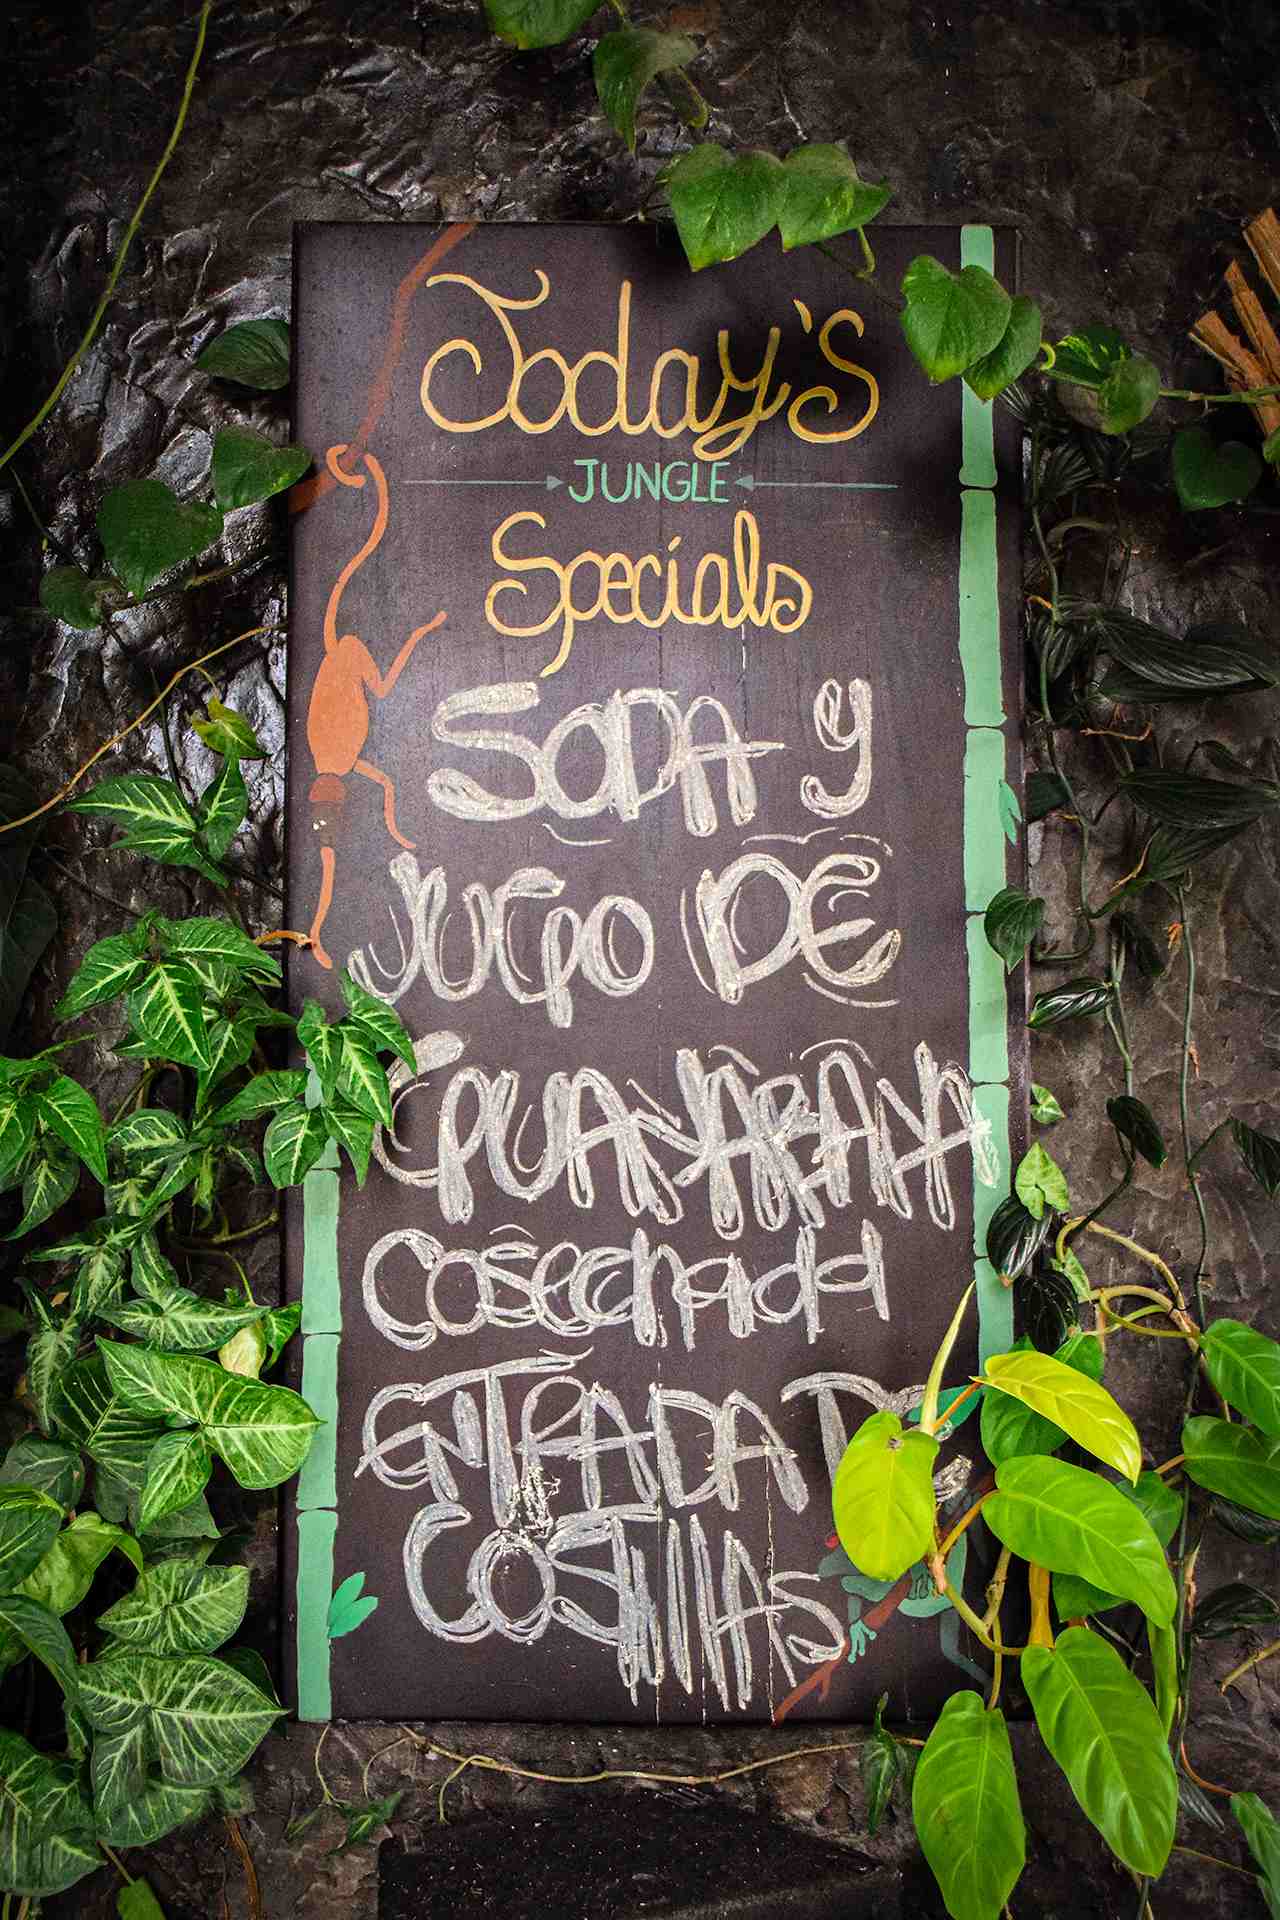 Today's
JUNGLE
Specials
SODA y
JUGO DE
GUANABANA
Cosechada
ENTRADA DE
COSTILLAS